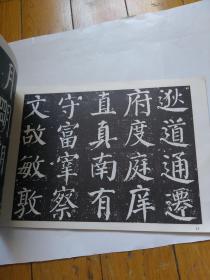 逖道通遷
府度庭庠
直真南有
守富宰察
文故敏敦
月